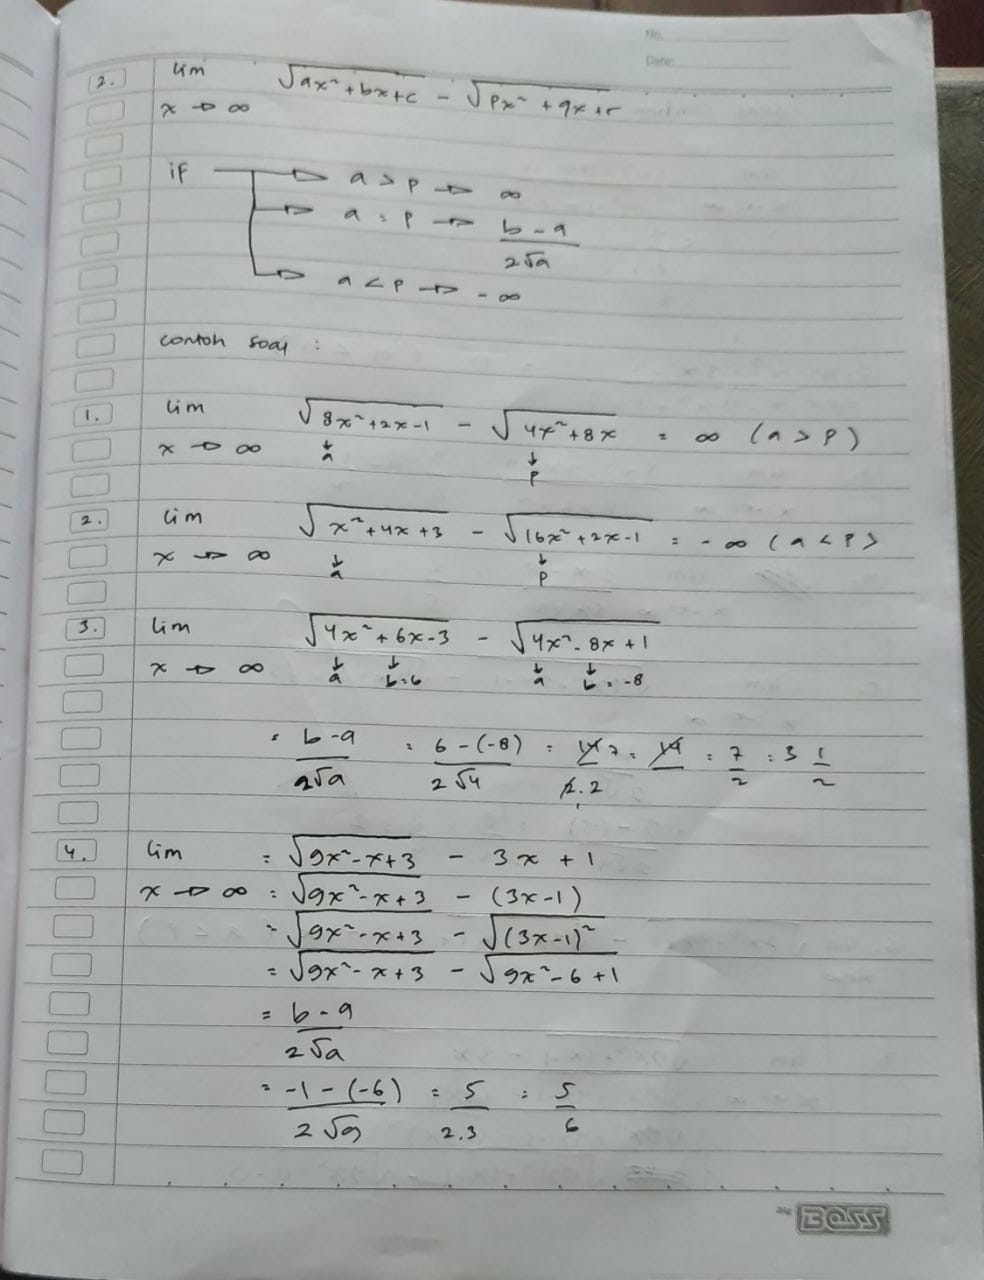 No.
Date:
2. lim √ax²+bx+c - √px²+qx+r
x → ∞
if → a > p → ∞
→ a = p → b-q
2√a
→ a < p → -∞
contoh soal :
1. lim √8x²+2x-1 - √4x²+8x = ∞ (a > p)
x → ∞ ↓ a ↓ p
2. lim √x²+4x+3 - √16x²+2x-1 = -∞ (a < p>
x → ∞ ↓ a ↓ p
3. lim √4x²+6x-3 - √4x²-8x+1
x → ∞ ↓ a ↓ b=6 ↓ a ↓ b = -8
= b-q = 6-(-8) = 14 7 = 14 = 7 = 3 1
2√a 2√4 2.2 2 2
4. lim = √9x²-x+3 - 3x + 1
x → ∞ = √9x²-x+3 - (3x-1)
= √9x²-x+3 - √(3x-1)²
= √9x²-x+3 - √9x²-6+1
= b-q
2√a
= -1-(-6) = 5 = 5
2√9 2.3 6
BOSS